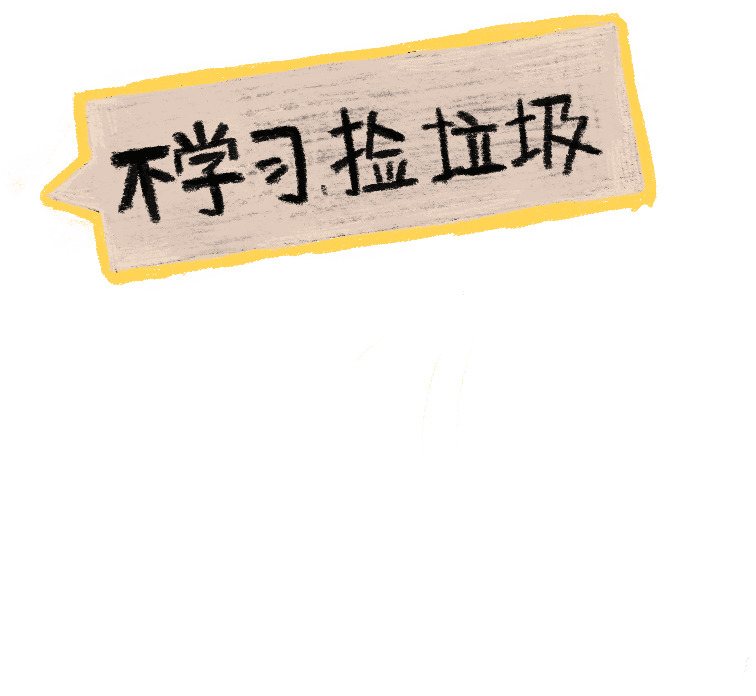 不学习捡垃圾